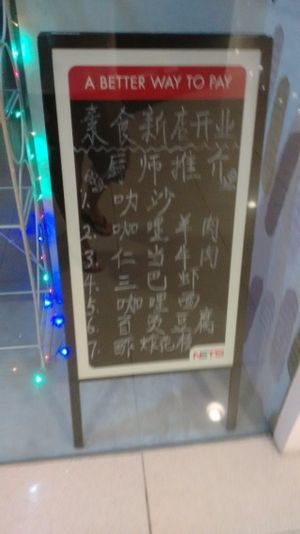 A BETTER WAY TO PAY
素食新店开业
厨师推介
1. 叻沙
2. 咖哩羊肉
3. 仁当牛肉
4. 三巴虾
5. 咖哩面
6. 豆腐
7. 酥炸花枝
NETS